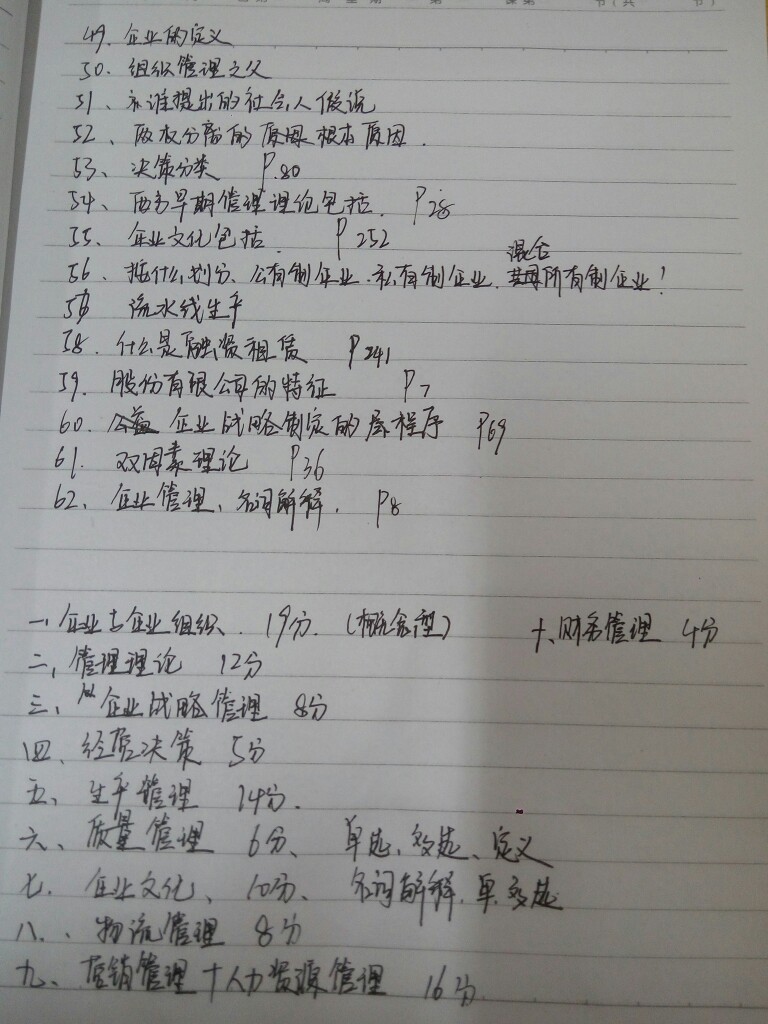 49、企业的定义
50、组织管理之父
51、谁提出的社会人假说
52、两权分离的原因 根本原因.
53、决策分类 P.80
54、西方早期管理理论包括. P28
55、企业文化包括. P252
56、按什么划分、公有制企业、私有制企业、混合所有制企业!
57 流水线生产
58、什么是融资租赁 P241
59、股份有限公司的特征 P7
60、企业战略制定的程序 P69
61、双因素理论 P36
62、企业管理、名词解释. P8
一、企业与企业组织. 19分. (概念型) 十、财务管理 4分
二、管理理论 12分
三、企业战略管理 8分
四、经营决策 5分
五、生产管理 14分.
六、质量管理 6分、 单选、多选、定义
七、企业文化、 10分、 名词解释、单、多选
八、物流管理 8分
九、营销管理+人力资源管理 16分.